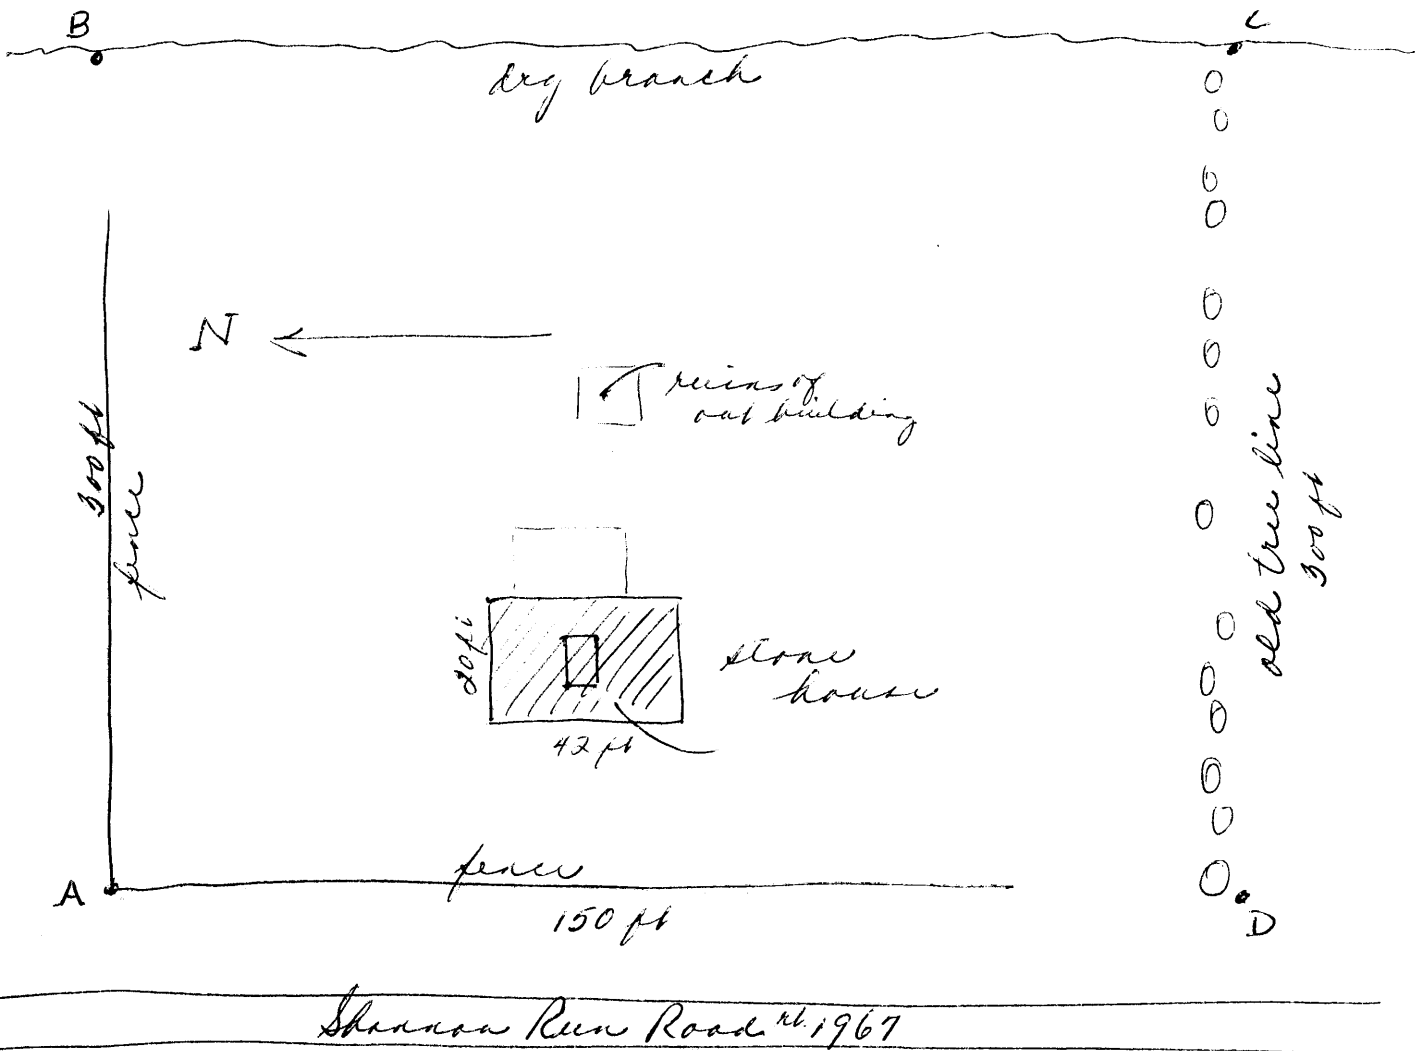 B
C
dry branch
N
ruins of
out building
300 ft
fence
old tree line
300 ft
20 ft
stone
house
42 ft
fence
A
150 ft
D
Shannon Run Road rt. 1967